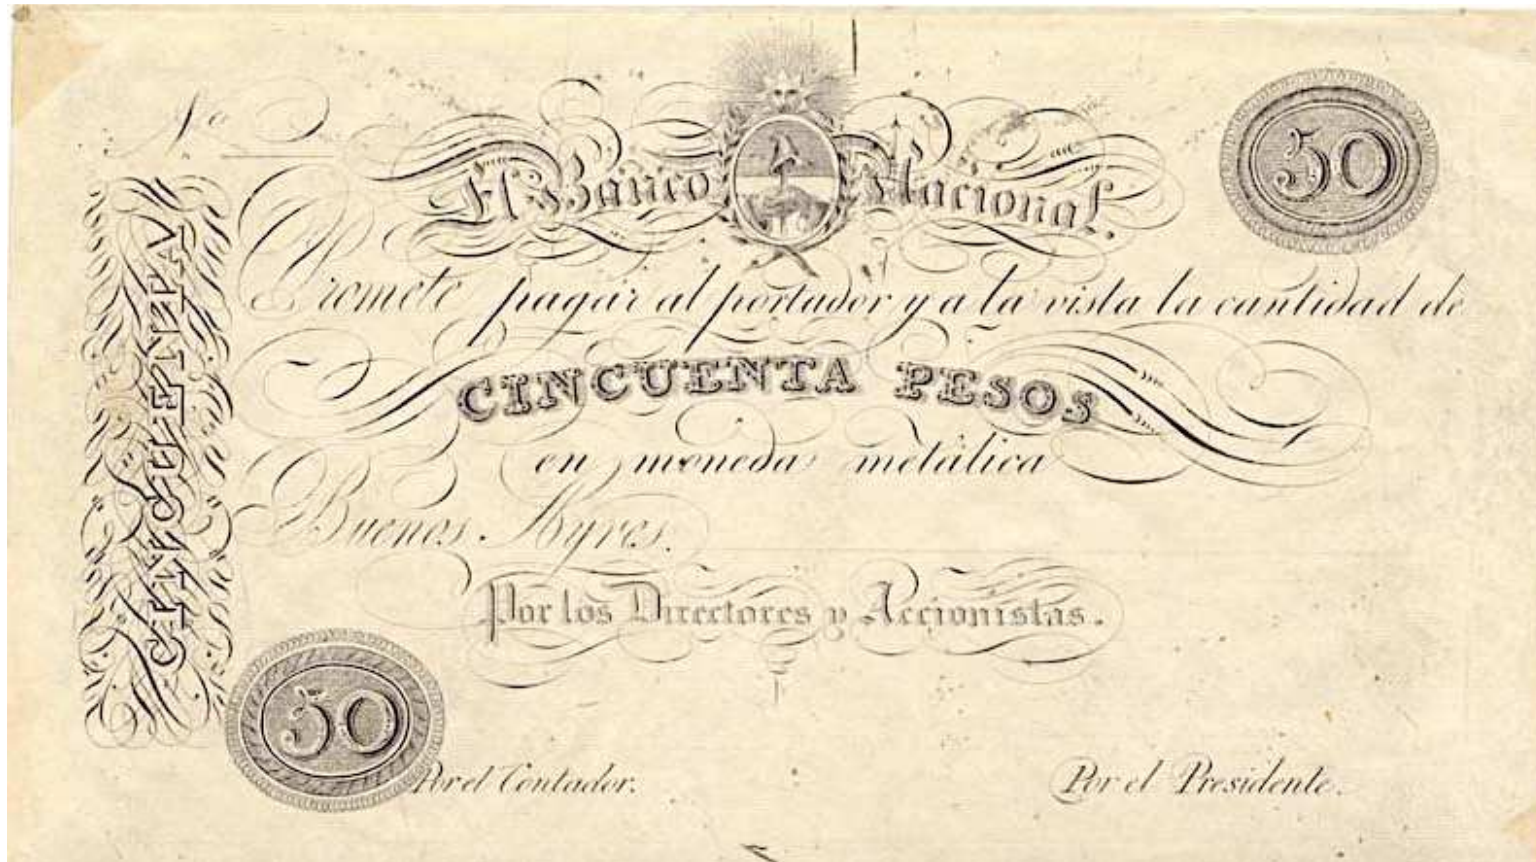 Nº
El Banco Nacional.
50
Promete pagar al portador y a la vista la cantidad de
CINCUENTA PESOS
en moneda metálica
Buenos Ayres.
Por los Directores y Accionistas.
CINCUENTA
50
Por el Contador.
Por el Presidente.